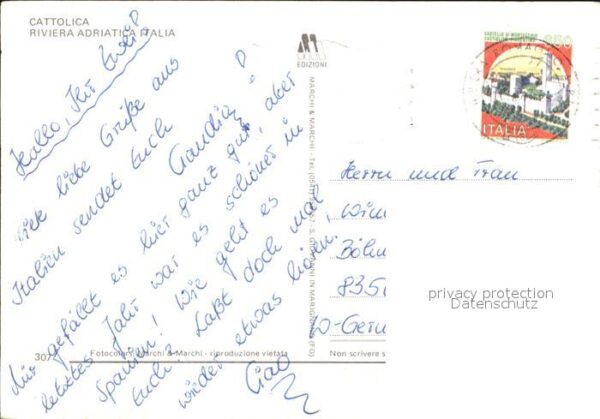 CATTOLICA
RIVIERA ADRIATICA ITALIA
Hallo, Ihr Zwei!
Viele liebe Grüße aus
Italien sendet Euch
Claudia!
Mir gefällt es hier ganz gut, aber
letztes Jahr war es schöner in
Spanien! Wie geht es
Euch? Laßt doch mal
wieder etwas hören.
Ciao
M
EDIZIONI
MARCHI & MARCHI - Tel. (0541) S. GIOVANNI IN MARIGNANO (FO)
650
ITALIA
Herrn und Frau
Wim
Böhm
835
D-Germ
privacy protection
Datenschutz
307
Fotocolor Marchi & Marchi - riproduzione vietata
Non scrivere s